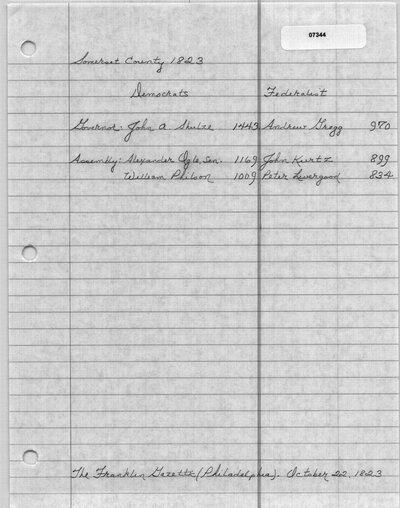 07344
Somerset County 1823
Democrats Federalist
Governor: John A. Shulze 1443 Andrew Gregg 970
Assembly: Alexander Ogle Sen. 1169 John Kurtz 899
William Philson 1009 Peter Levergood 834
The Franklin Gazette (Philadelphia). October 22, 1823